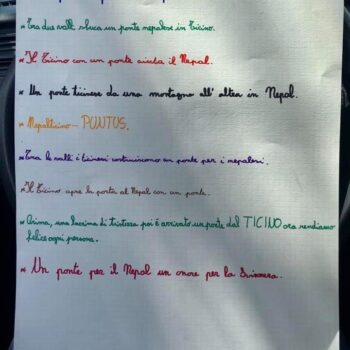 * Tra due valli sbuca un ponte nepalese in Ticino.
* Il Ticino con un ponte aiuta il Nepal.
* Un ponte ticinese da una montagna all' altra in Nepal.
* Nepalticino - PONTUS.
* Tra le valli i ticinesi costruiscono un ponte per i nepalesi.
* Il Ticino apre la porta al Nepal con un ponte.
* Prima, una lacrima di tristezza poi è arrivato un ponte dal TICINO ora rendiamo
felice ogni persona.
* Un ponte per il Nepal un onore per la Svizzera.